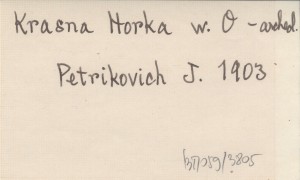 Krasna Horka w. O - archeol.
Petrikovich J. 1903
B7059/3805